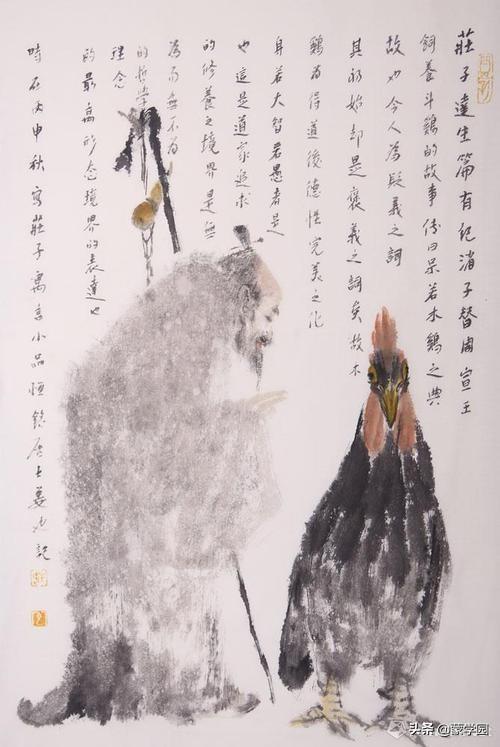 莊子達生篇有紀渻子替周宣王
飼養斗鷄的故事傳曰呆若木鷄之典
故也今人為貶義之詞
其初始却是褒義之詞矣故木
鷄為得道後德性完美之化
身若大智若愚者是
也這是道家追求
的修養之境界是無
為而無不為
的哲學
理念
的最高形态境界的表達也
時在丙申秋寫莊子寓言小品恒銘居士姜
頭条 @蒙学园